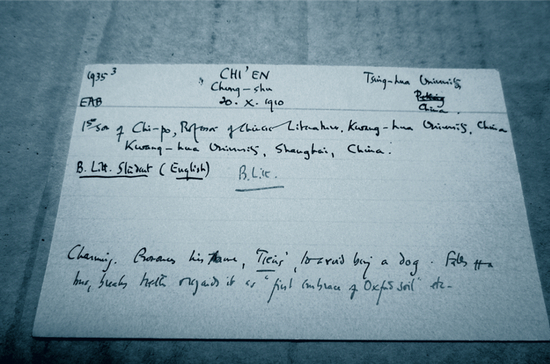 1935³ CHI'EN Tsing-hua University
Chung-shu Peking
EAB 20. X. 1910 China
1st son of Chi-po, Professor of Chinese Literature, Kwang-hua University, China
Kwang-hua University, Shanghai, China.
B. Litt. Student (English) B. Litt.
Charming. Pronounces his name, 'Tsien', to avoid being a dog. Falls off a
bus, breaks teeth regards it as "first embrace of Oxford soil" etc.